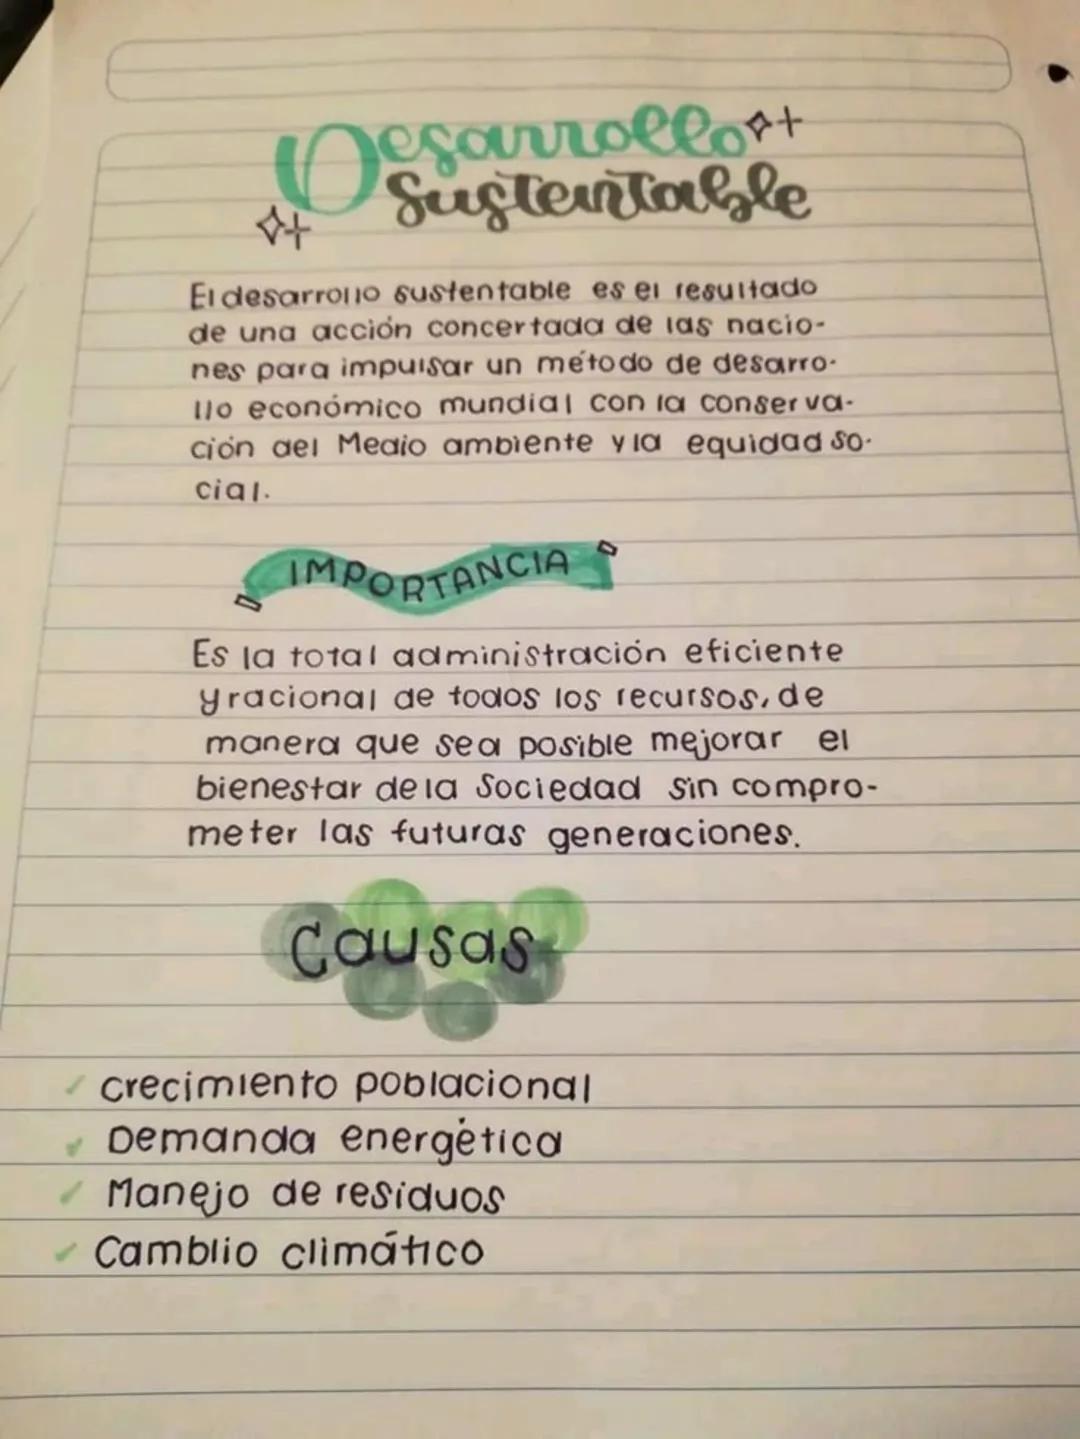 Desarrollo
Sustentable
El desarrollo sustentable es el resultado
de una acción concertada de las nacio-
nes para impulsar un método de desarro-
llo económico mundial con la conserva-
ción del Medio ambiente y la equidad so-
cial.
IMPORTANCIA
Es la total administración eficiente
y racional de todos los recursos, de
manera que sea posible mejorar el
bienestar de la Sociedad sin compro-
meter las futuras generaciones.
Causas
crecimiento poblacional
Demanda energética
Manejo de residuos
Camblio climático